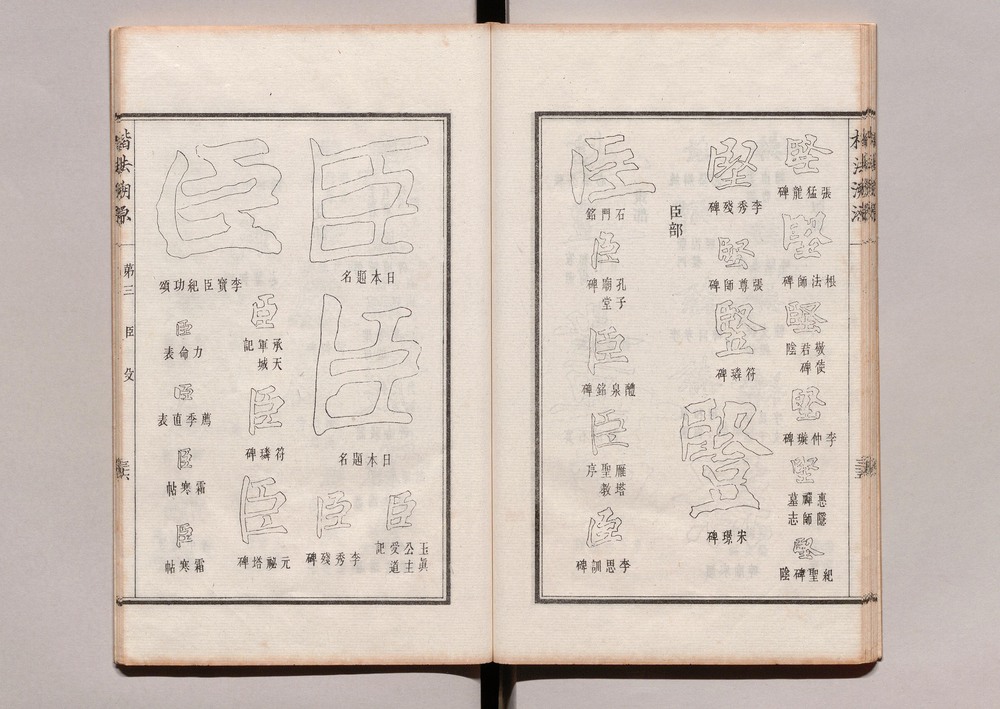 張猛龍碑
根法師碑
敬使君碑陰
李仲璇碑
惠隱禪師墓志
紀聖碑陰
李秀殘碑
張尊師碑
符璘碑
豎
宋璟碑
臣部
臣
石門銘
臣
孔子廟堂碑
臣
醴泉銘碑
臣
雁塔聖教序
臣
李思訓碑
臣
日本題名
臣
日本題名
臣
玉眞公主受道記
臣
李秀殘碑
臣
承天軍城記
臣
符璘碑
臣
元祕塔碑
臣
李寶臣紀功頌
臣
力命表
臣
薦季直表
臣
霜寒帖
臣
霜寒帖
楷法溯源
第三
臣
殳